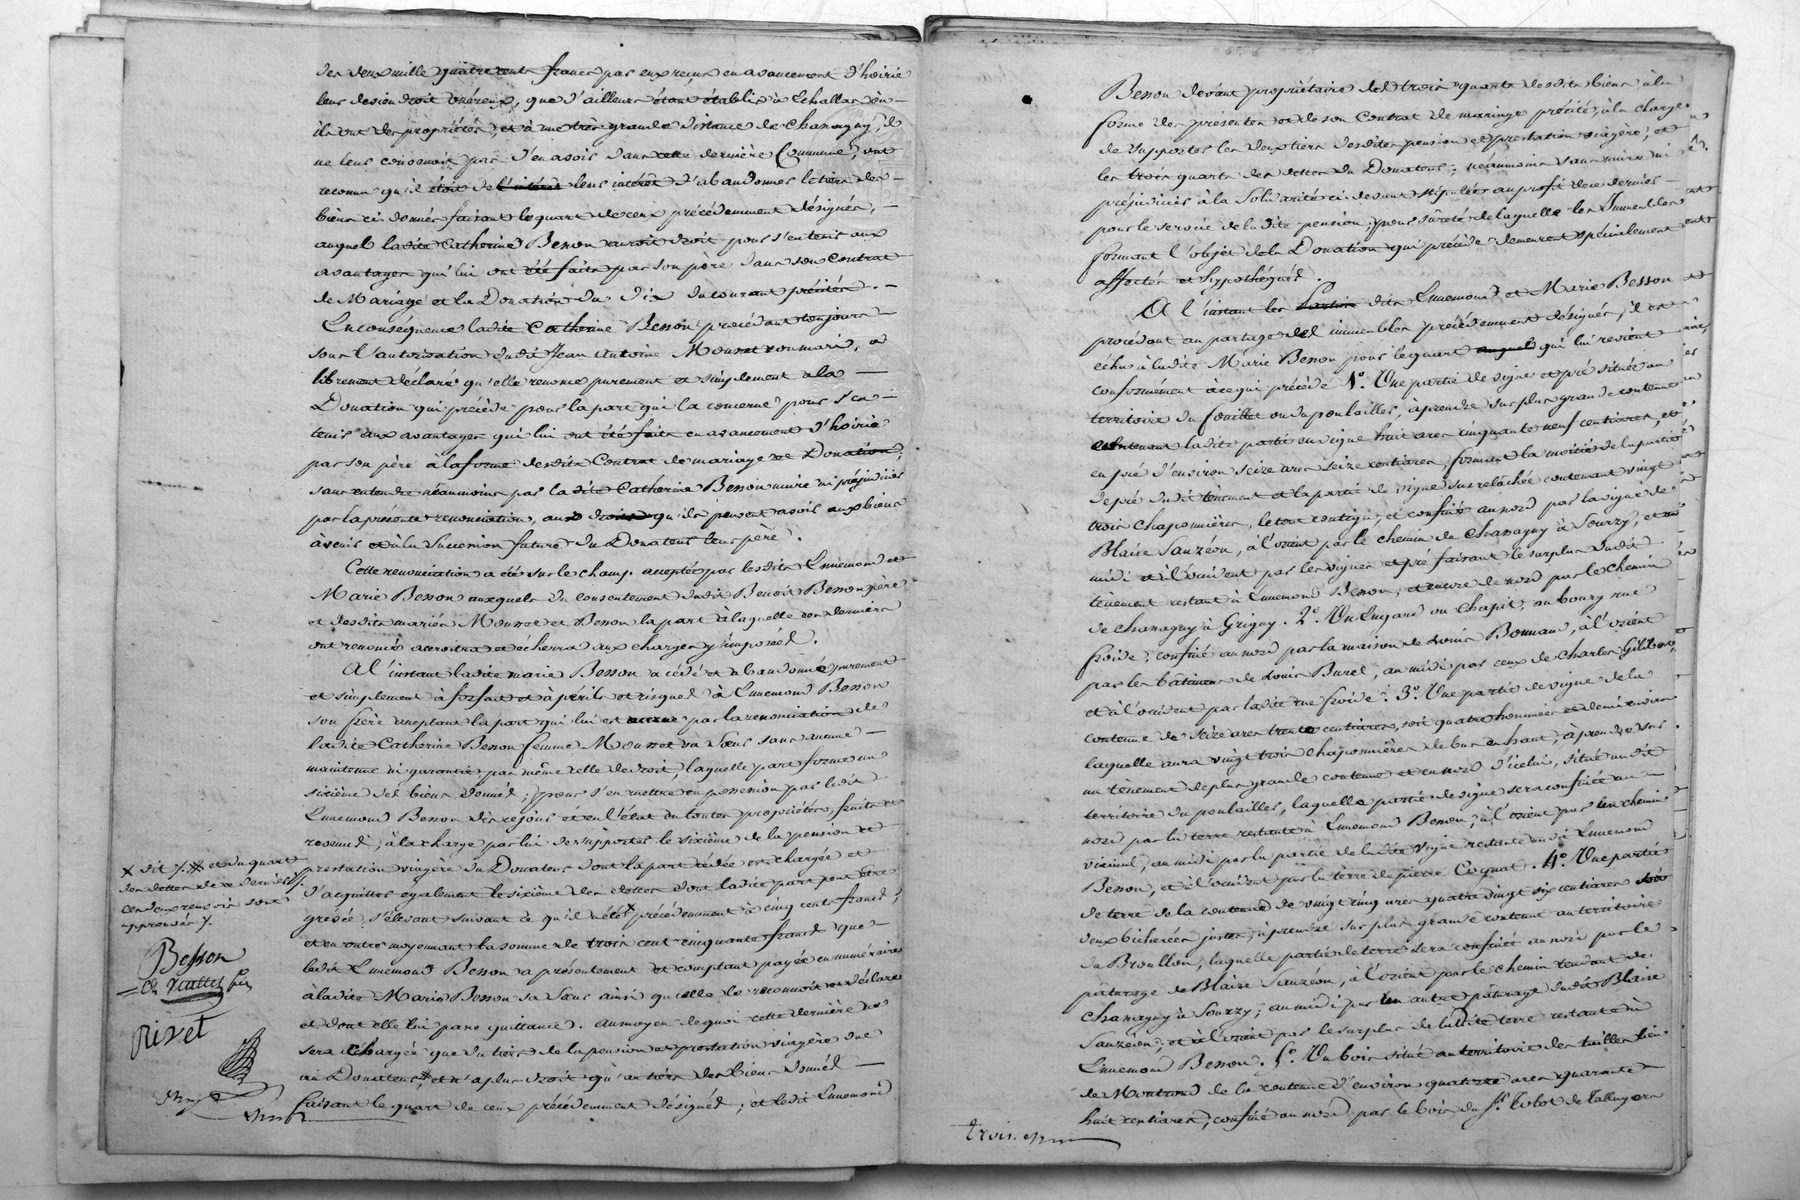 des deux mille quatre cents francs par eux reçus en avancement d'hoirie
leur devien droit onéreux, que d'ailleurs étant établis à Echallas où
ils ont des propriétés, et à une très grande distance de Chassagny, il
ne leur convenoit pas d'en avoir dans cette dernière Commune, ont
reconnu qu'il étoit de l'intérêt leur intérêt d'abandonner le tiers des
biens ci donnés faisant le quart de ceux précédemment désignés,
auquel ladite Catherine Besson auroit droit pour s'en tenir aux
avantages qui lui ont été faits par son père dans son contrat
de Mariage et la Donation du dix du courant précités.
En conséquence ladite Catherine Besson procédant toujours
sous l'autorisation dudit Jean Antoine Mousset son mari, a
librement déclaré qu'elle renonce purement et simplement à la
Donation qui précède pour la part qui la concerne pour s'en
tenir aux avantages qui lui ont été faits en avancement d'hoirie
par son père à la forme desdits Contrat de mariage et Donation,
sans entendre néanmoins par ladite Catherine Besson nuire ni préjudicier
par la présente renonciation, aux droits qu'ils peuvent avoir aux biens
à venir et à la Succession future du Donateur leur père.
Cette renonciation a été sur le champ acceptée par lesdits Ennemond et
Marie Besson auxquels du consentement dudit Benoit Besson père
et desdits mariés Mousset et Besson la part à laquelle ces derniers
ont renoncé accroitra et écherra aux charges y imposées.
A l'instant ladite marie Besson a cédé et abandonné purement
et simplement à forfait et à périls et risques à Ennemond Besson
son frère acceptant la part qui lui est accrue par la renonciation de
ladite Catherine Besson femme Mousset sa Sœur sans aucune
maintenue ni garantie pas même celle de droit, laquelle part forme un
sixième des biens donnés; pour s'en mettre en possession par ledit
Ennemond Besson dès ce jour et en l'état en toutes propriétés, fruits et
revenus, à la charge par lui de supporter le sixième de la pension et
prestation viagère du Donateur dont la part cédée est chargée et
d'acquitter également le sixième des dettes dont ladite part peut être
grevée, s'élevant suivant ce qu'il a été x précédemment à cinq cents francs;
et en outre moyennant la somme de trois cent cinquante francs que
ledit Ennemond Besson a présentement et comptant payée en numéraire
à ladite Marie Besson sa Sœur ainsi qu'elle le reconnoit et déclare
et dont elle lui passe quittance. au moyen de quoi cette dernière ne
sera chargée que du tiers de la pension et prestation viagère due
au Donateur # et n'a plus droit qu'au tiers des biens donnés
faisant le quart de ceux précédemment désignés; et ledit Ennemond
x dit /. # et du quart
des dettes de ce dernier /.
ces deux renvois sont
approuvés /.
Besson
Rivet
Besson devant propriétaire des trois quarts desdits biens à la
forme des présentes et de son Contrat de mariage précité, à la charge
de supporter les deux tiers desdites pension et prestation viagère, et
les trois quarts des dettes du Donateur; néanmoins sans nuire ni
préjudicier à la Solidarité ci devant stipulée au profit de ce dernier
pour le service de ladite pension; pour sûreté de laquelle les Immeubles
formant l'objet de la Donation qui précède demeurent spécialement
affectés et hypothéqués.
A l'instant les Parties dits Ennemond et Marie Besson
procédant au partage des immeubles précédemment désignés, il est
échu à ladite Marie Besson pour le quart auquel qui lui revient
conformément à ce qui précède 1°. Une partie de vigne et pré située au
territoire du fouillet ou du poulailles, à prendre sur plus grande contenue
contenant ladite partie en vigne huit ares cinquante neuf centiares, et
en pré d'environ seize ares seize centiares, formant la moitié de la partie
de pré dudit tènement et la partie de vigne sus relachée contenant vingt
trois chaponnières, le tout contigu, et confiné au nord par la vigne de
Blaise Sauzéon, à l'orient par le chemin de Chassagny à Sourzy, et au
midi et à l'occident par les vignes et pré faisant le surplus dudit
tènement restant à Ennemond Besson, et encore de nord par le chemin
de Chassagny à Grigny. 2°. Un Engard ou Chapit, au bourg rue
froide, confiné au nord par la maison de Louis Bonnand, à l'orient
par les bâtiments de Louis Burel, au midi par ceux de Charles Gilibert,
et à l'occident par ladite rue froide. 3°. Une partie de vigne de la
contenue de seize ares trente centiares, soit quatre hommées et demi environ
laquelle aura vingt trois chaponnières de bas en haut, à prendre sur
un tènement de plus grande contenue et au nord d'icelui, situé audit
territoire du poulailles, laquelle partie de vigne sera confinée au
nord par la terre restante à Ennemond Besson, à l'orient par un chemin
vicinal, au midi par la partie de ladite vigne restante audit Ennemond
Besson, et à l'occident par la terre de pierre Cognat. 4°. Une partie
de terre de la contenue de vingt cinq ares quatre vingt six centiares soit
deux bicherées justes, à prendre sur plus grande contenue au territoire
du Broullon, laquelle partie de terre sera confinée au nord par le
pâturage de Blaise Sauzéon, à l'orient par le chemin tendant de
Chassagny à Sourzy; au midi par un autre pâturage dudit Blaise
Sauzéon, et à l'occident par le surplus de ladite terre restante à
Ennemond Besson. 5°. Un bois situé au territoire des tailles
de Montrond de la contenue d'environ quatorze ares quarante
huit centiares, confiné au nord par le bois du Sr. Tolot de Talluyers